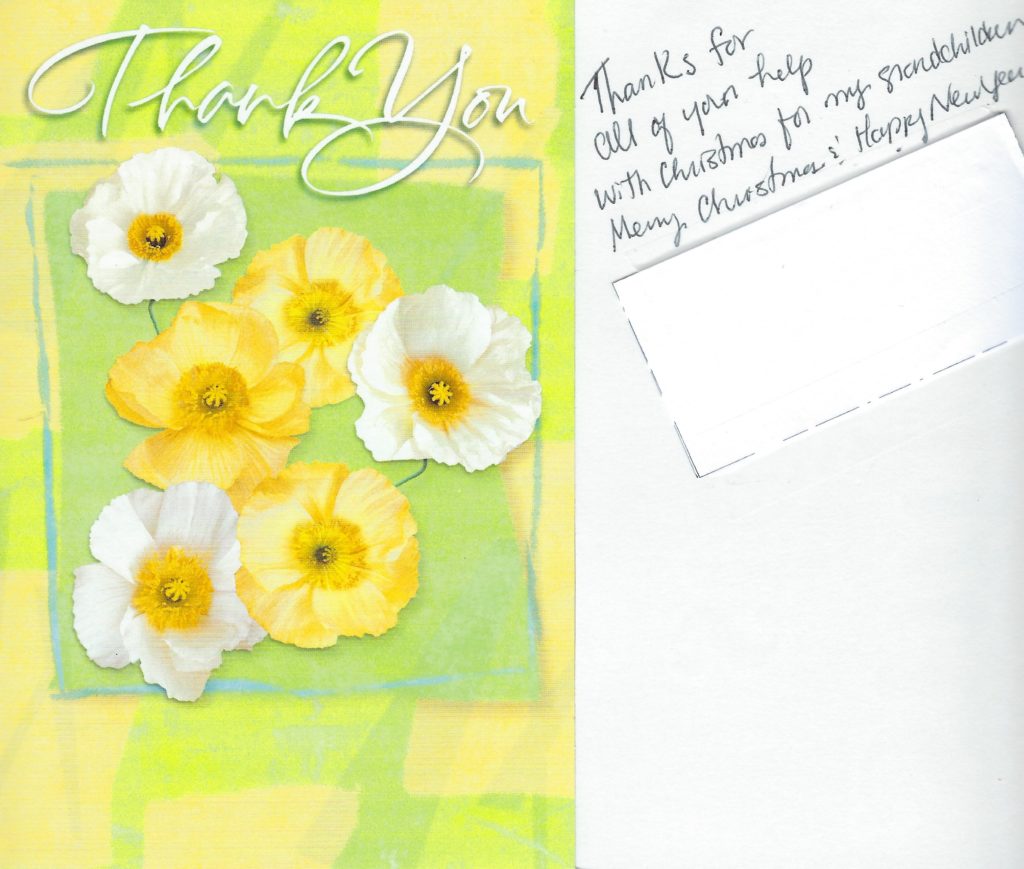 Thank You
Thanks for
all of your help
with Christmas for my grandchildren
Merry Christmas & Happy New Year